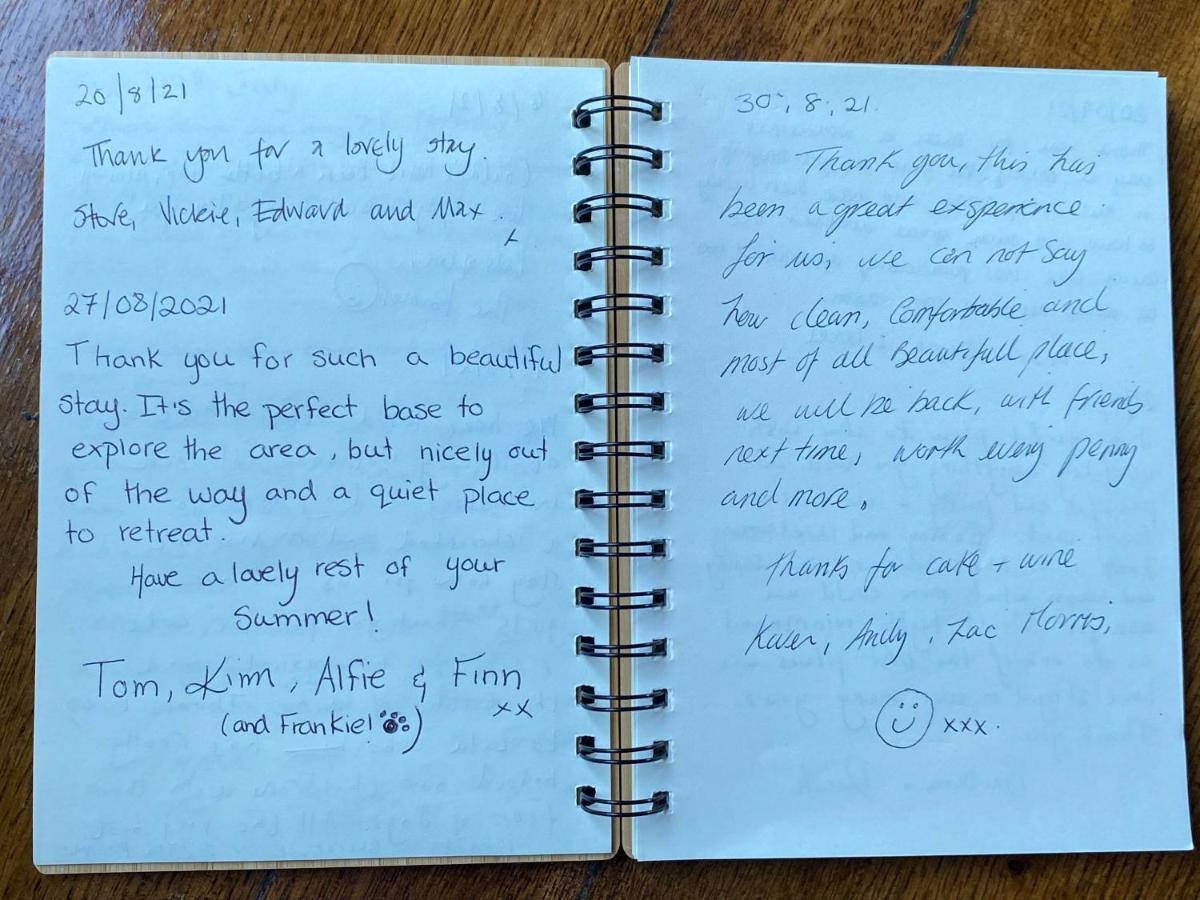 20/8/21
Thank you for a lovely stay.
Steve, Vickie, Edward and Max.
x
27/08/2021
Thank you for such a beautiful
stay. It's the perfect base to
explore the area, but nicely out
of the way and a quiet place
to retreat.
Have a lovely rest of your
Summer!
Tom, Kim, Alfie & Finn
xx
(and Frankie!)
30. 8. 21.
Thank you, this has
been a great exsperience
for us, we can not say
how clean, Comfortable and
most of all Beautifull place,
we will be back, with friends
next time, worth every penny
and more.
Thanks for cake + wine
Karen, Andy, Zac Morris,
xxx.